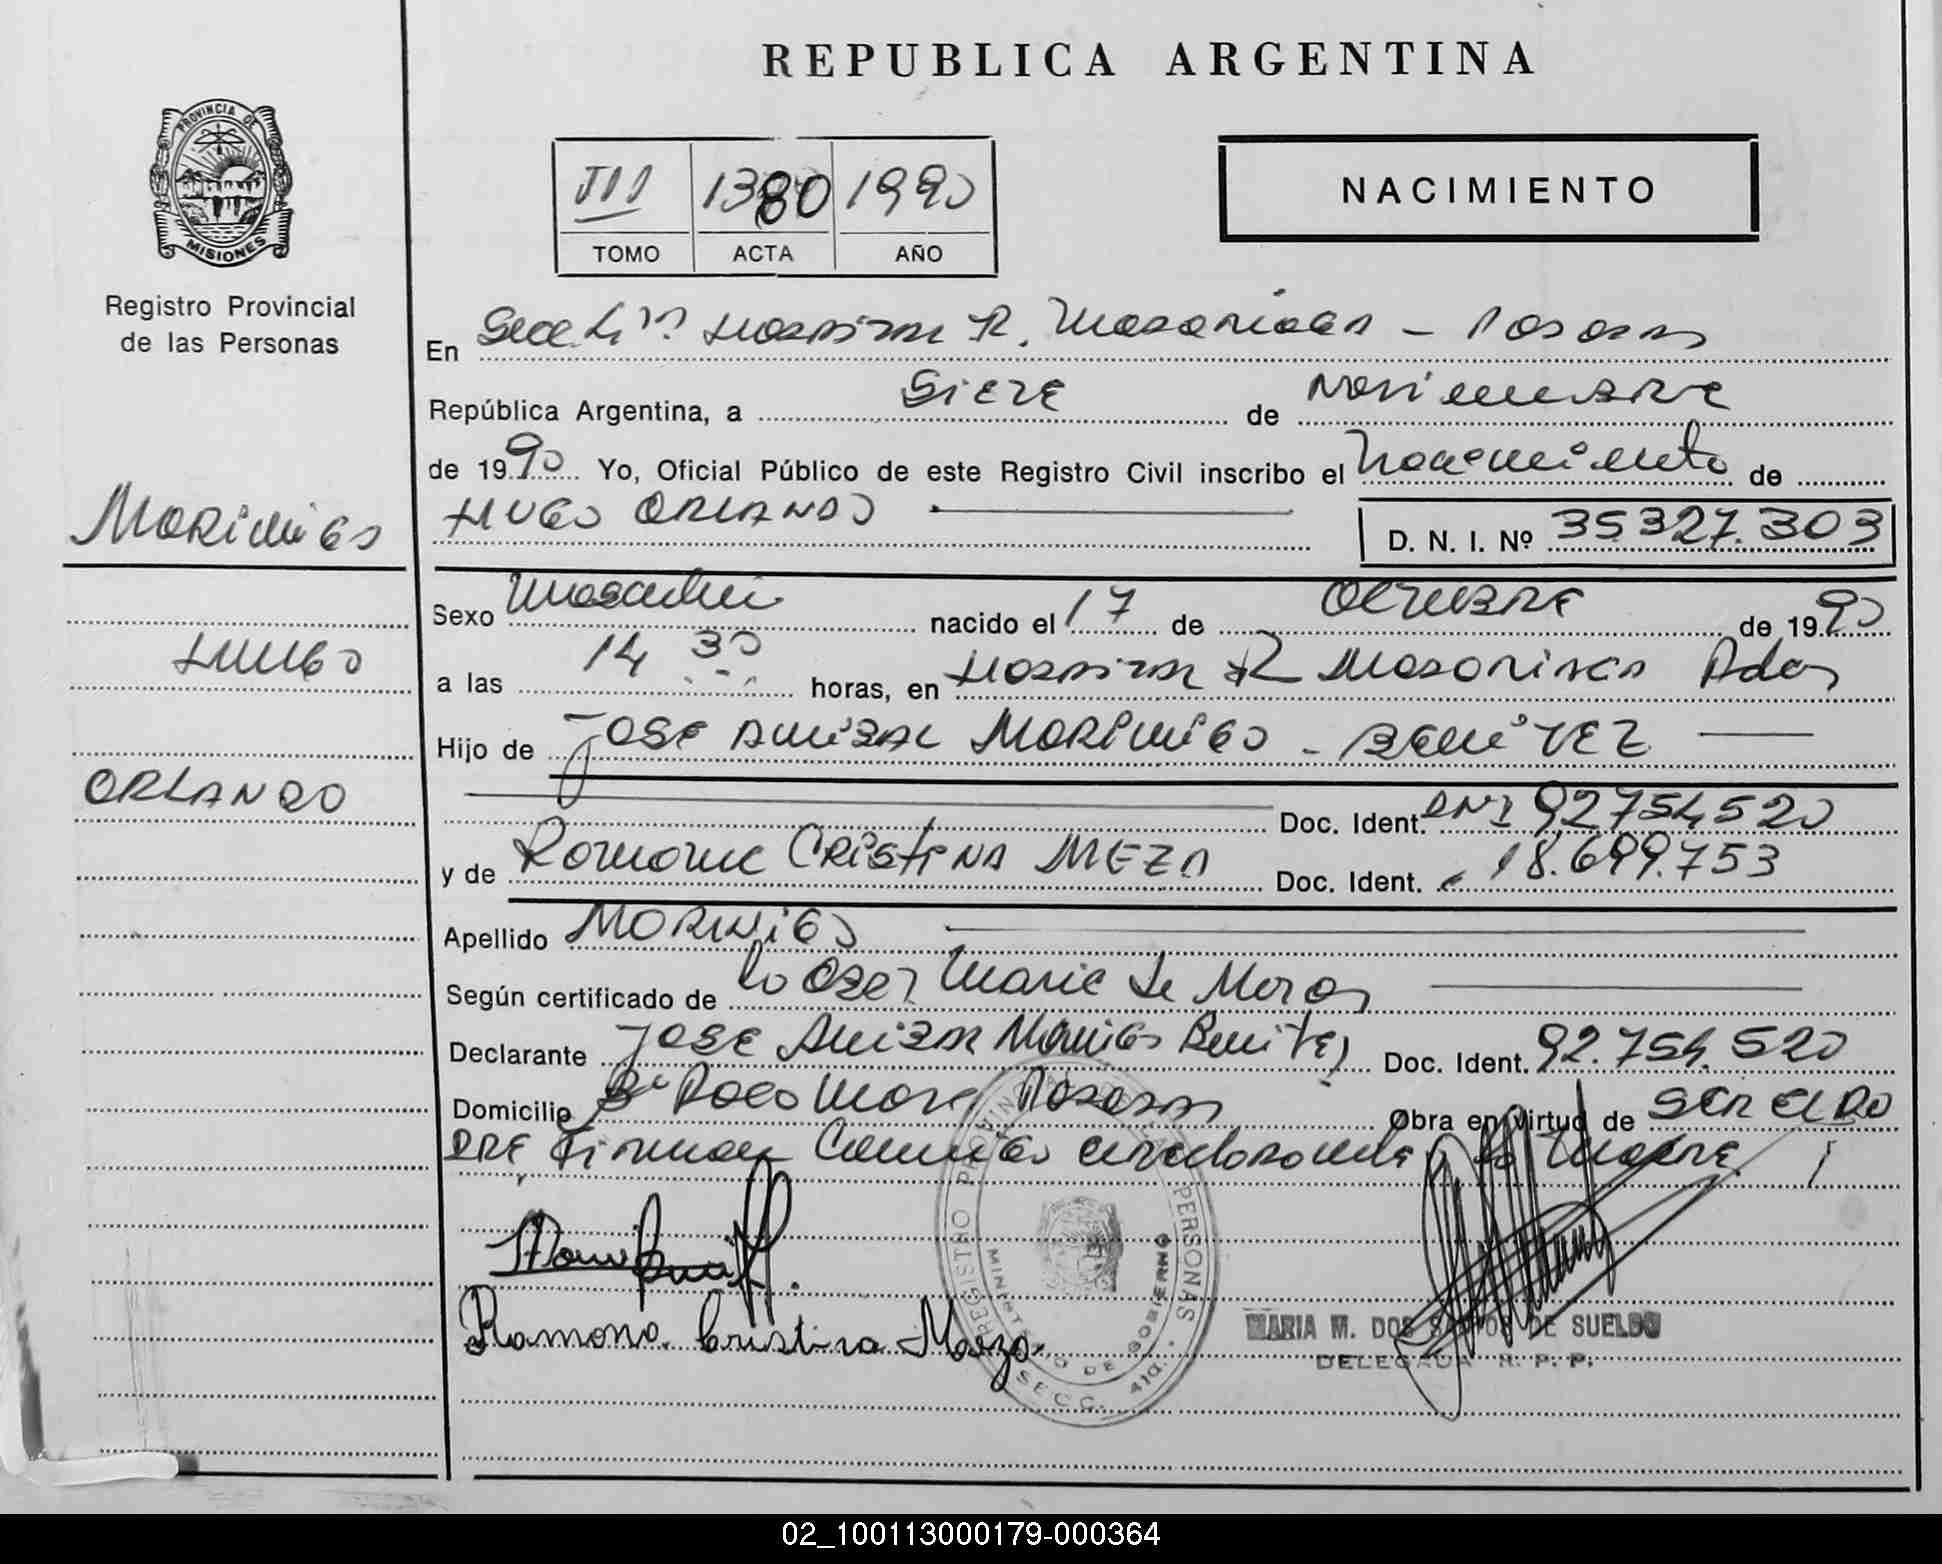 REPUBLICA ARGENTINA
PROVINCIA DE
MISIONES
Registro Provincial
de las Personas
III 1380 1990
TOMO ACTA AÑO
NACIMIENTO
En Secc. Hospital R. Madariaga - Posadas
República Argentina, a SIETE de NOVIEMBRE
de 1990 Yo, Oficial Público de este Registro Civil inscribo el Nacimiento de
HUGO ORLANDO
D. N. I. Nº 35.327.303
MORINIGO
HUGO
ORLANDO
Sexo Masculino nacido el 17 de OCTUBRE de 1990
a las 14 30 horas, en HOSPITAL R Madariaga Pdas
Hijo de JOSE ANIBAL MORINIGO - BENITEZ
Doc. Ident. DNI 92754520
y de Ramona CRISTINA MEZA Doc. Ident. 18.699.753
Apellido MORINIGO
Según certificado de la Obst Maria de Moras
Declarante JOSE ANIBAL Morinigo Benitez Doc. Ident. 92.754.520
Domicilio Bº Posadas Obra en virtud de SER EL PA
DRE Firman la Madre
Ramona Cristina Meza
REGISTRO PROVINCIAL DE LAS PERSONAS
MINISTERIO DE GOBIERNO
SECC.
MARIA M. DOS SANTOS DE SUELDO
DELEGADA R. P. P.
02_100113000179-000364